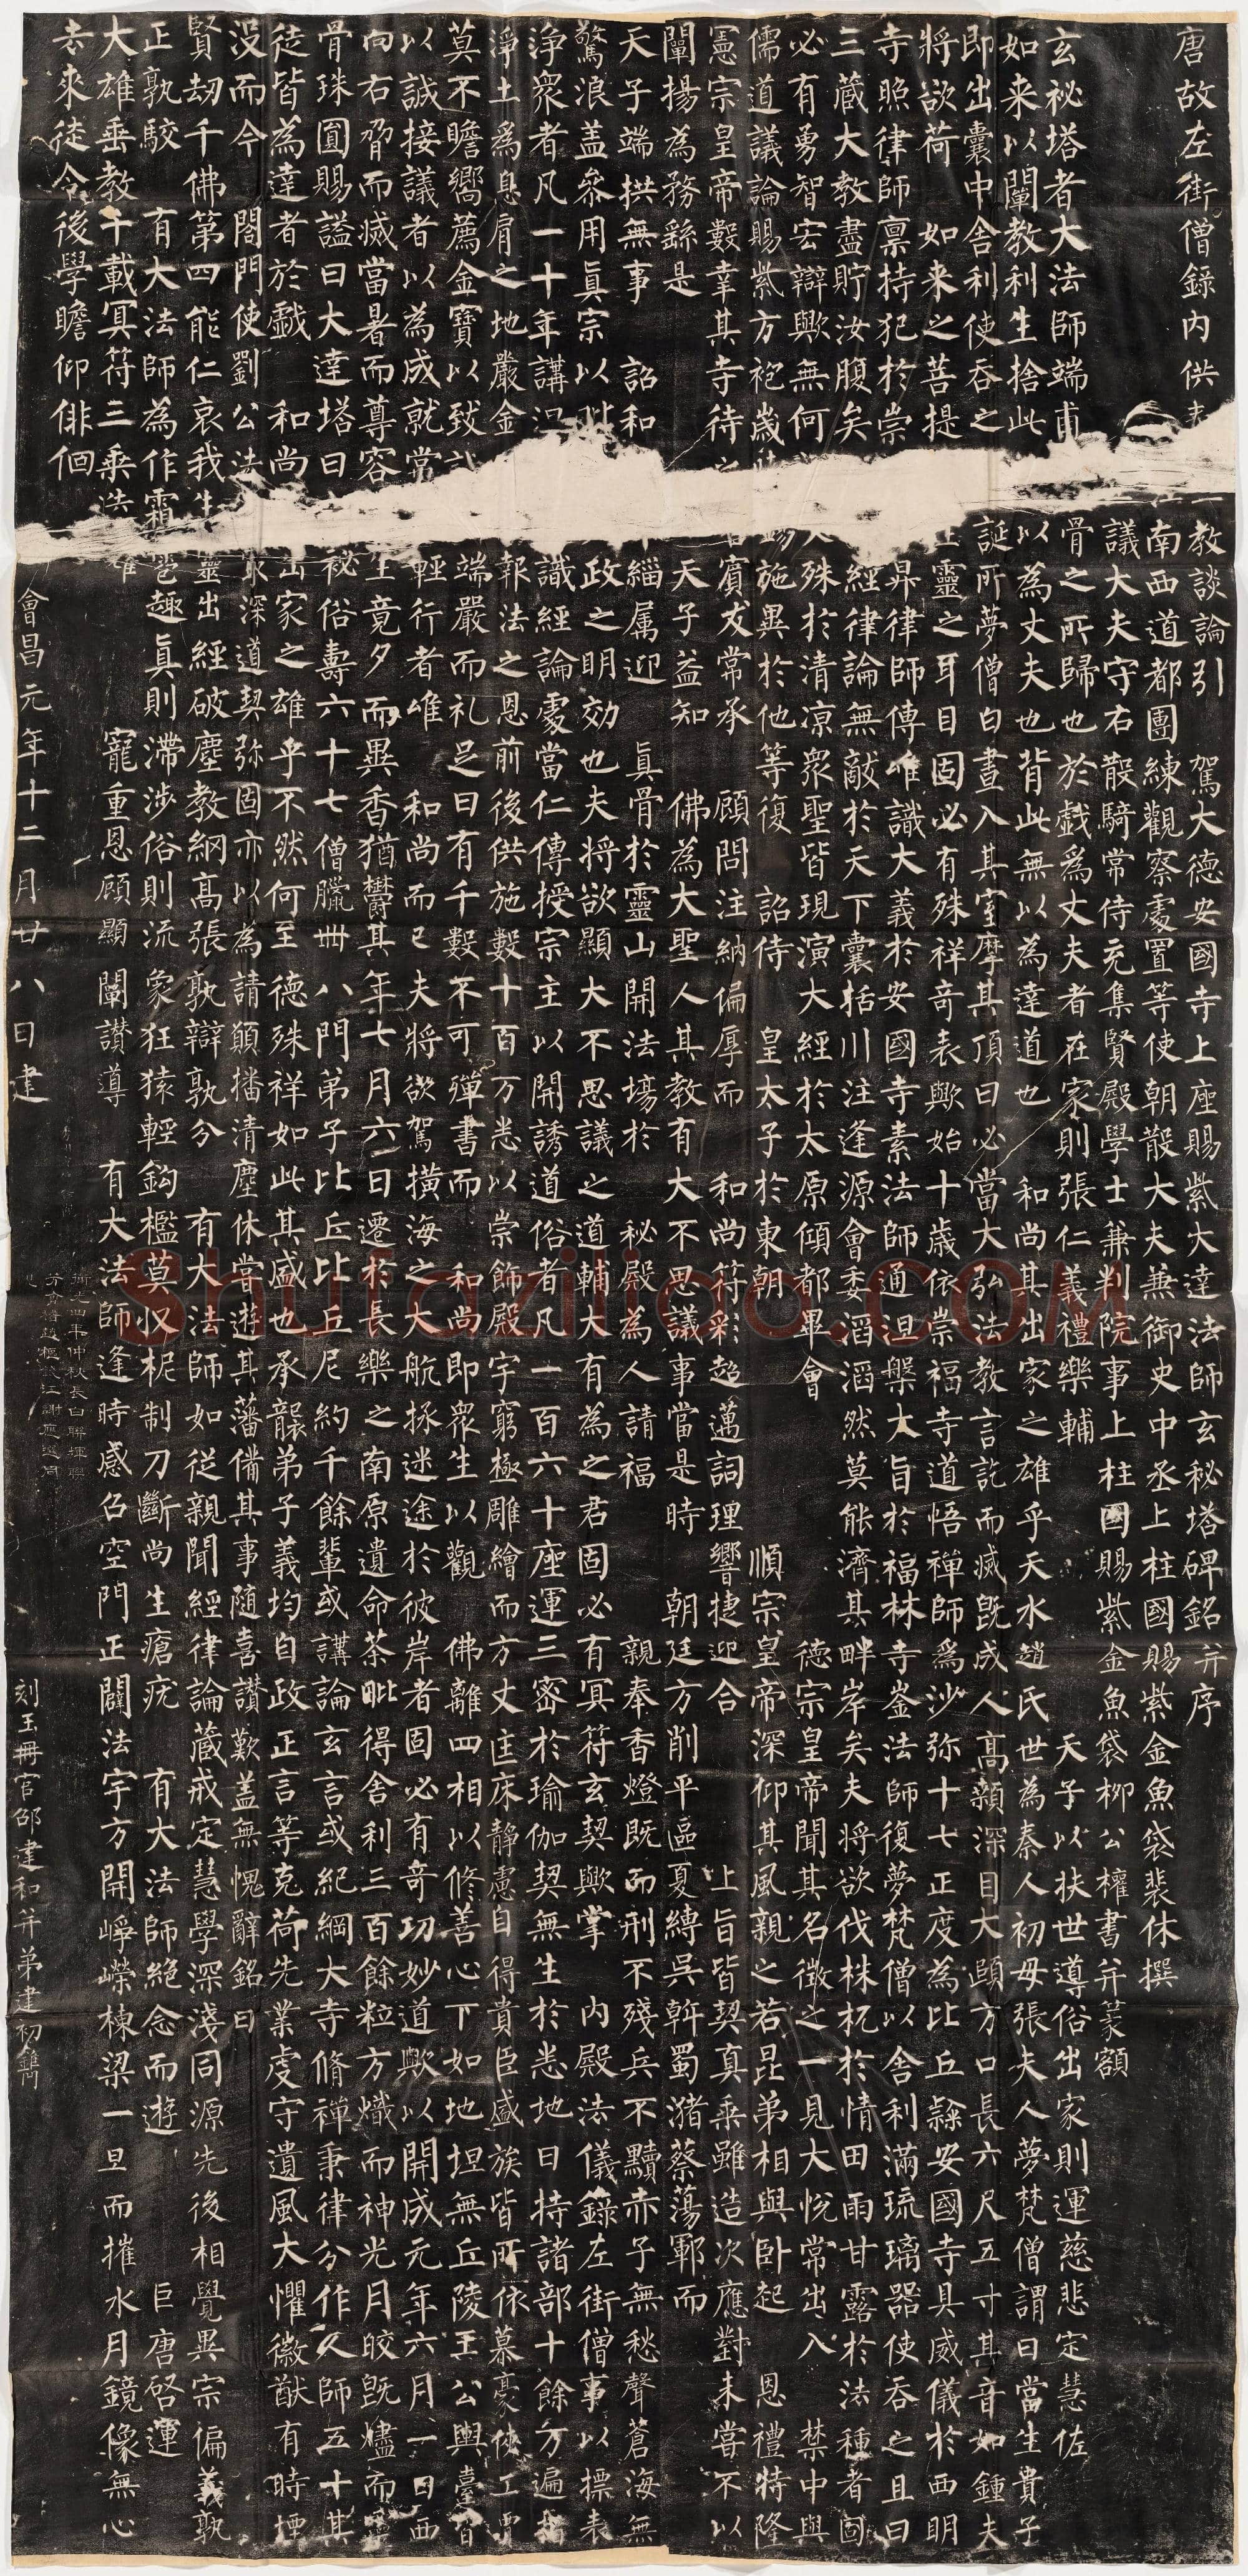 唐故左街僧錄內供 教談論引 駕大德安國寺上座賜紫大達法師玄秘塔碑銘并序
南西道都團練觀察處置等使朝散大夫兼御史中丞上柱國賜紫金魚袋裴休撰
議大夫守右散騎常侍充集賢殿學士兼判院事上柱國賜紫金魚袋柳公權書并篆額
玄祕塔者大法師端甫 骨之所歸也於戲爲丈夫者在家則張仁義禮樂輔 天子以扶世導俗出家則運慈悲定慧佐
如来以闡教利生捨此 以為丈夫也背此無以為達道也 和尚其出家之雄乎天水趙氏世為秦人初母張夫人夢梵僧謂曰當生貴子
即出囊中舍利使吞之 誕所夢僧白晝入其室摩其頂曰必當大弘法教言訖而滅既成人高顙深目大頤方口長六尺五寸其音如鍾夫
將欲荷 如来之菩提 靈之耳目固必有殊祥奇表歟始十歲依崇福寺道悟禪師爲沙弥十七正度為比丘隸安國寺具威儀於西明
寺照律師禀持犯於崇 昇律師傳唯識大義於安國寺素法師通涅槃大旨於福林寺崟法師復夢梵僧以舍利滿琉璃器使吞之且曰
三藏大教盡貯汝腹矣 經律論無敵於天下囊括川注逢源會委滔滔然莫能濟其畔岸矣夫將欲伐株杌於情田雨甘露於法種者固
必有勇智宏辯歟無何 殊於清凉衆聖皆現演大經於太原傾都畢會 德宗皇帝聞其名徵之一見大悅常出入 禁中與
儒道議論賜紫方袍歲 施異於他等復 詔侍 皇太子於東朝 順宗皇帝深仰其風親之若昆弟相與卧起 恩禮特隆
憲宗皇帝數幸其寺待 賓友常承 顧問注納偏厚而 和尚符彩超邁詞理響捷迎合 上旨皆契真乘雖造次應對未嘗不以
闡揚為務繇是 天子益知 佛為大聖人其教有大不思議事當是時 朝廷方削平區夏縛吳斡蜀瀦蔡蕩鄆而
天子端拱無事 詔和 緇属迎 眞骨於靈山開法場於 秘殿為人請福 親奉香燈既而刑不殘兵不黷赤子無愁聲蒼海無
驚浪盖參用眞宗以 政之明効也夫將欲顯大不思議之道輔大有為之君固必有冥符玄契歟掌 內殿法儀錄左街僧事以摽表
淨衆者凡一十年講 識經論處當仁傳授宗主以開誘道俗者凡一百六十座運三密於瑜伽契無生於悉地日持諸部十餘万遍指
淨土爲息肩之地嚴金 報法之恩前後供施數十百万悉以崇飾殿宇窮極雕繪而方丈匡床靜慮自得貴臣盛族皆所依慕豪俠工賈
莫不瞻嚮薦金寶以致 端嚴而礼足日有千數不可殫書而 和尚即衆生以觀 佛離四相以修善心下如地坦無丘陵王公輿臺皆
以誠接議者以為成就常 輕行者唯 和尚而已夫將欲駕橫海之大航拯迷途於彼岸者固必有奇功妙道歟以開成元年六月一日西
向右脅而滅當暑而尊容 生竟夕而異香猶鬱其年七月六日遷於長樂之南原遺命荼毗得舍利三百餘粒方熾而神光月皎既燼而靈
骨珠圓賜謚曰大達塔曰 秘俗壽六十七僧臘卌八門弟子比丘比丘尼約千餘輩或講論玄言或紀綱大寺脩禪秉律分作人師五十其
徒皆為達者於戲 和尚 出家之雄乎不然何至德殊祥如此其盛也承襲弟子義均自政正言等克荷先業虔守遺風大懼徽猷有時堙
没而今 閤門使劉公法 最深道契弥固亦以為請願播清塵休嘗遊其藩備其事随喜讚歎盖無愧辭銘曰
賢劫千佛第四能仁哀我生靈出經破塵教綱高張孰辯孰分 有大法師如從親聞經律論藏戒定慧學深淺同源先後相覺異宗偏義孰
正孰駮 有大法師為作霜雹趣眞則滯涉俗則流象狂猿輕鈎檻莫收柅制刀斷尚生瘡疣 有大法師絕念而遊 巨唐啓運
大雄垂教千載冥符三乘迭耀 寵重恩顧顯闡讚導 有大法師逢時感召空門正闢法宇方開崢嶸棟梁一旦而摧水月鏡像無心
去来徒令後學瞻仰俳佪
會昌元年十二月廿八日建 刻玉冊官邵建和并弟建初鐫
shufaziliao.com